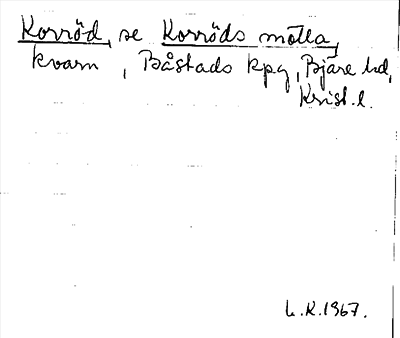 Korröd, se Korröds mölla,
kvarn, Båstads kpg, Bjäre hd,
Krist. l.
L.K.1967.